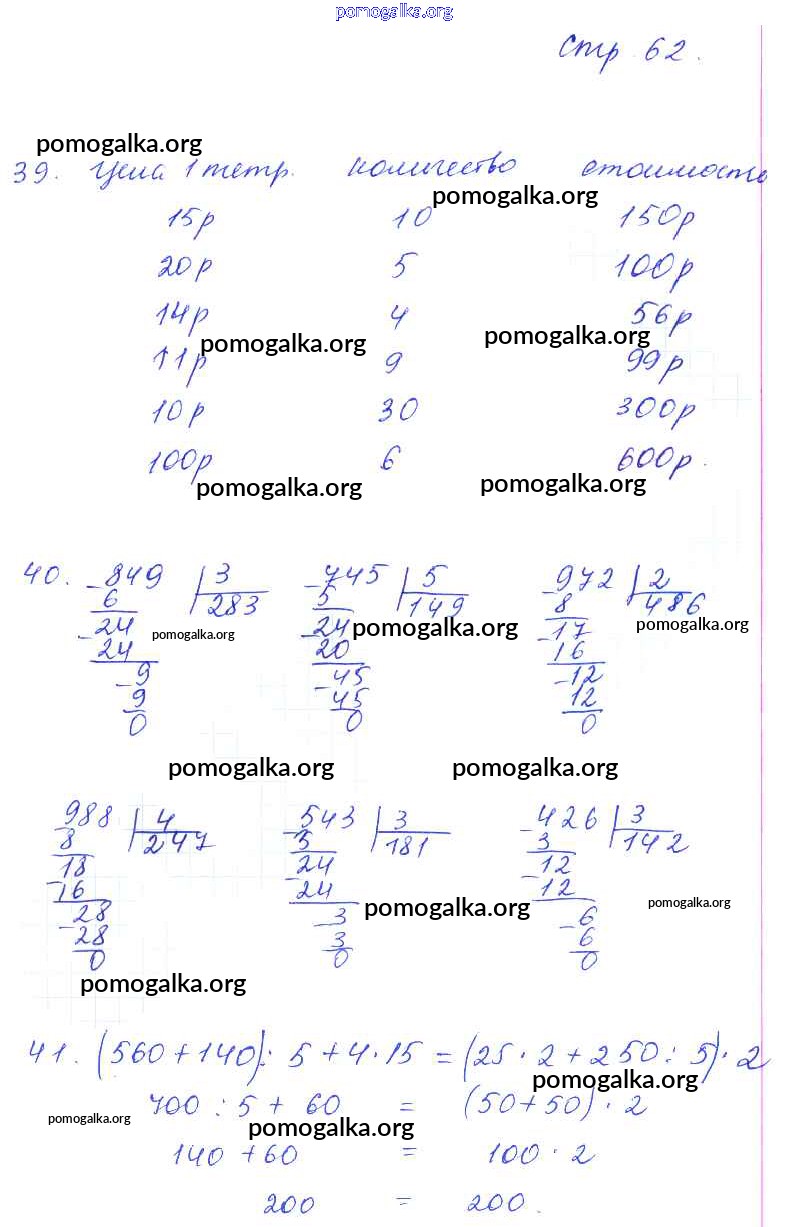 pomogalka.org
Стр 62.
pomogalka.org
39. Цена 1 тетр. количество стоимость
pomogalka.org
15р 10 150р
20р 5 100р
14р 4 56р
pomogalka.org pomogalka.org
11р 9 99р
10р 30 300р
100р 6 600р.
pomogalka.org pomogalka.org
40. -849 | 3 -745 | 5 -972 | 2
6 283 5 149 8 486
-24 pomogalka.org -24 pomogalka.org -17 pomogalka.org
24 20 16
-9 -45 -12
9 45 12
0 0 0
pomogalka.org pomogalka.org
-988 | 4 -543 | 3 -426 | 3
8 247 3 181 3 142
-18 -24 -12
16 24 12
-28 -3 pomogalka.org -6 pomogalka.org
28 3 6
0 0 0
pomogalka.org
41. (560+140): 5+4·15 = (25·2+250:5)·2
pomogalka.org
700 : 5 + 60 = (50+50)·2
pomogalka.org pomogalka.org
140 +60 = 100 · 2
200 = 200.